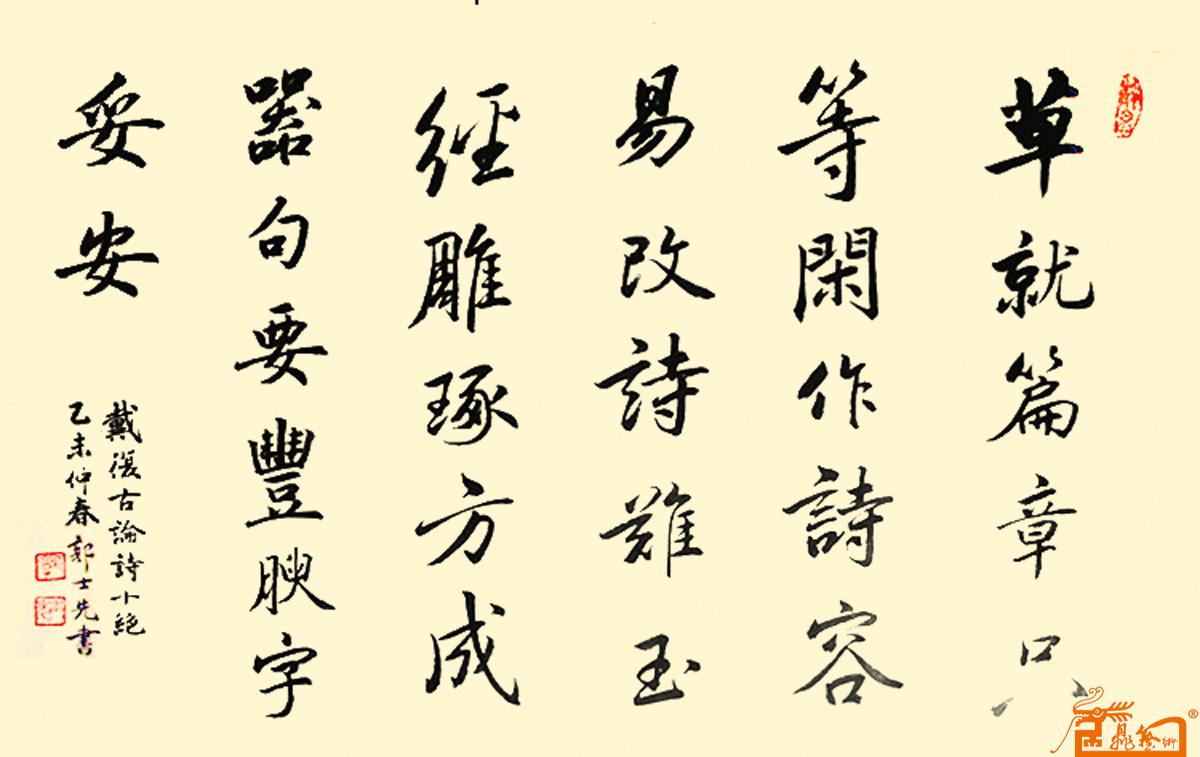 草就篇章只
等閑作詩容
易改詩難玉
經雕琢方成
器句要豐腴字
妥安
戴復古論詩十絕
乙未仲春郭士先書